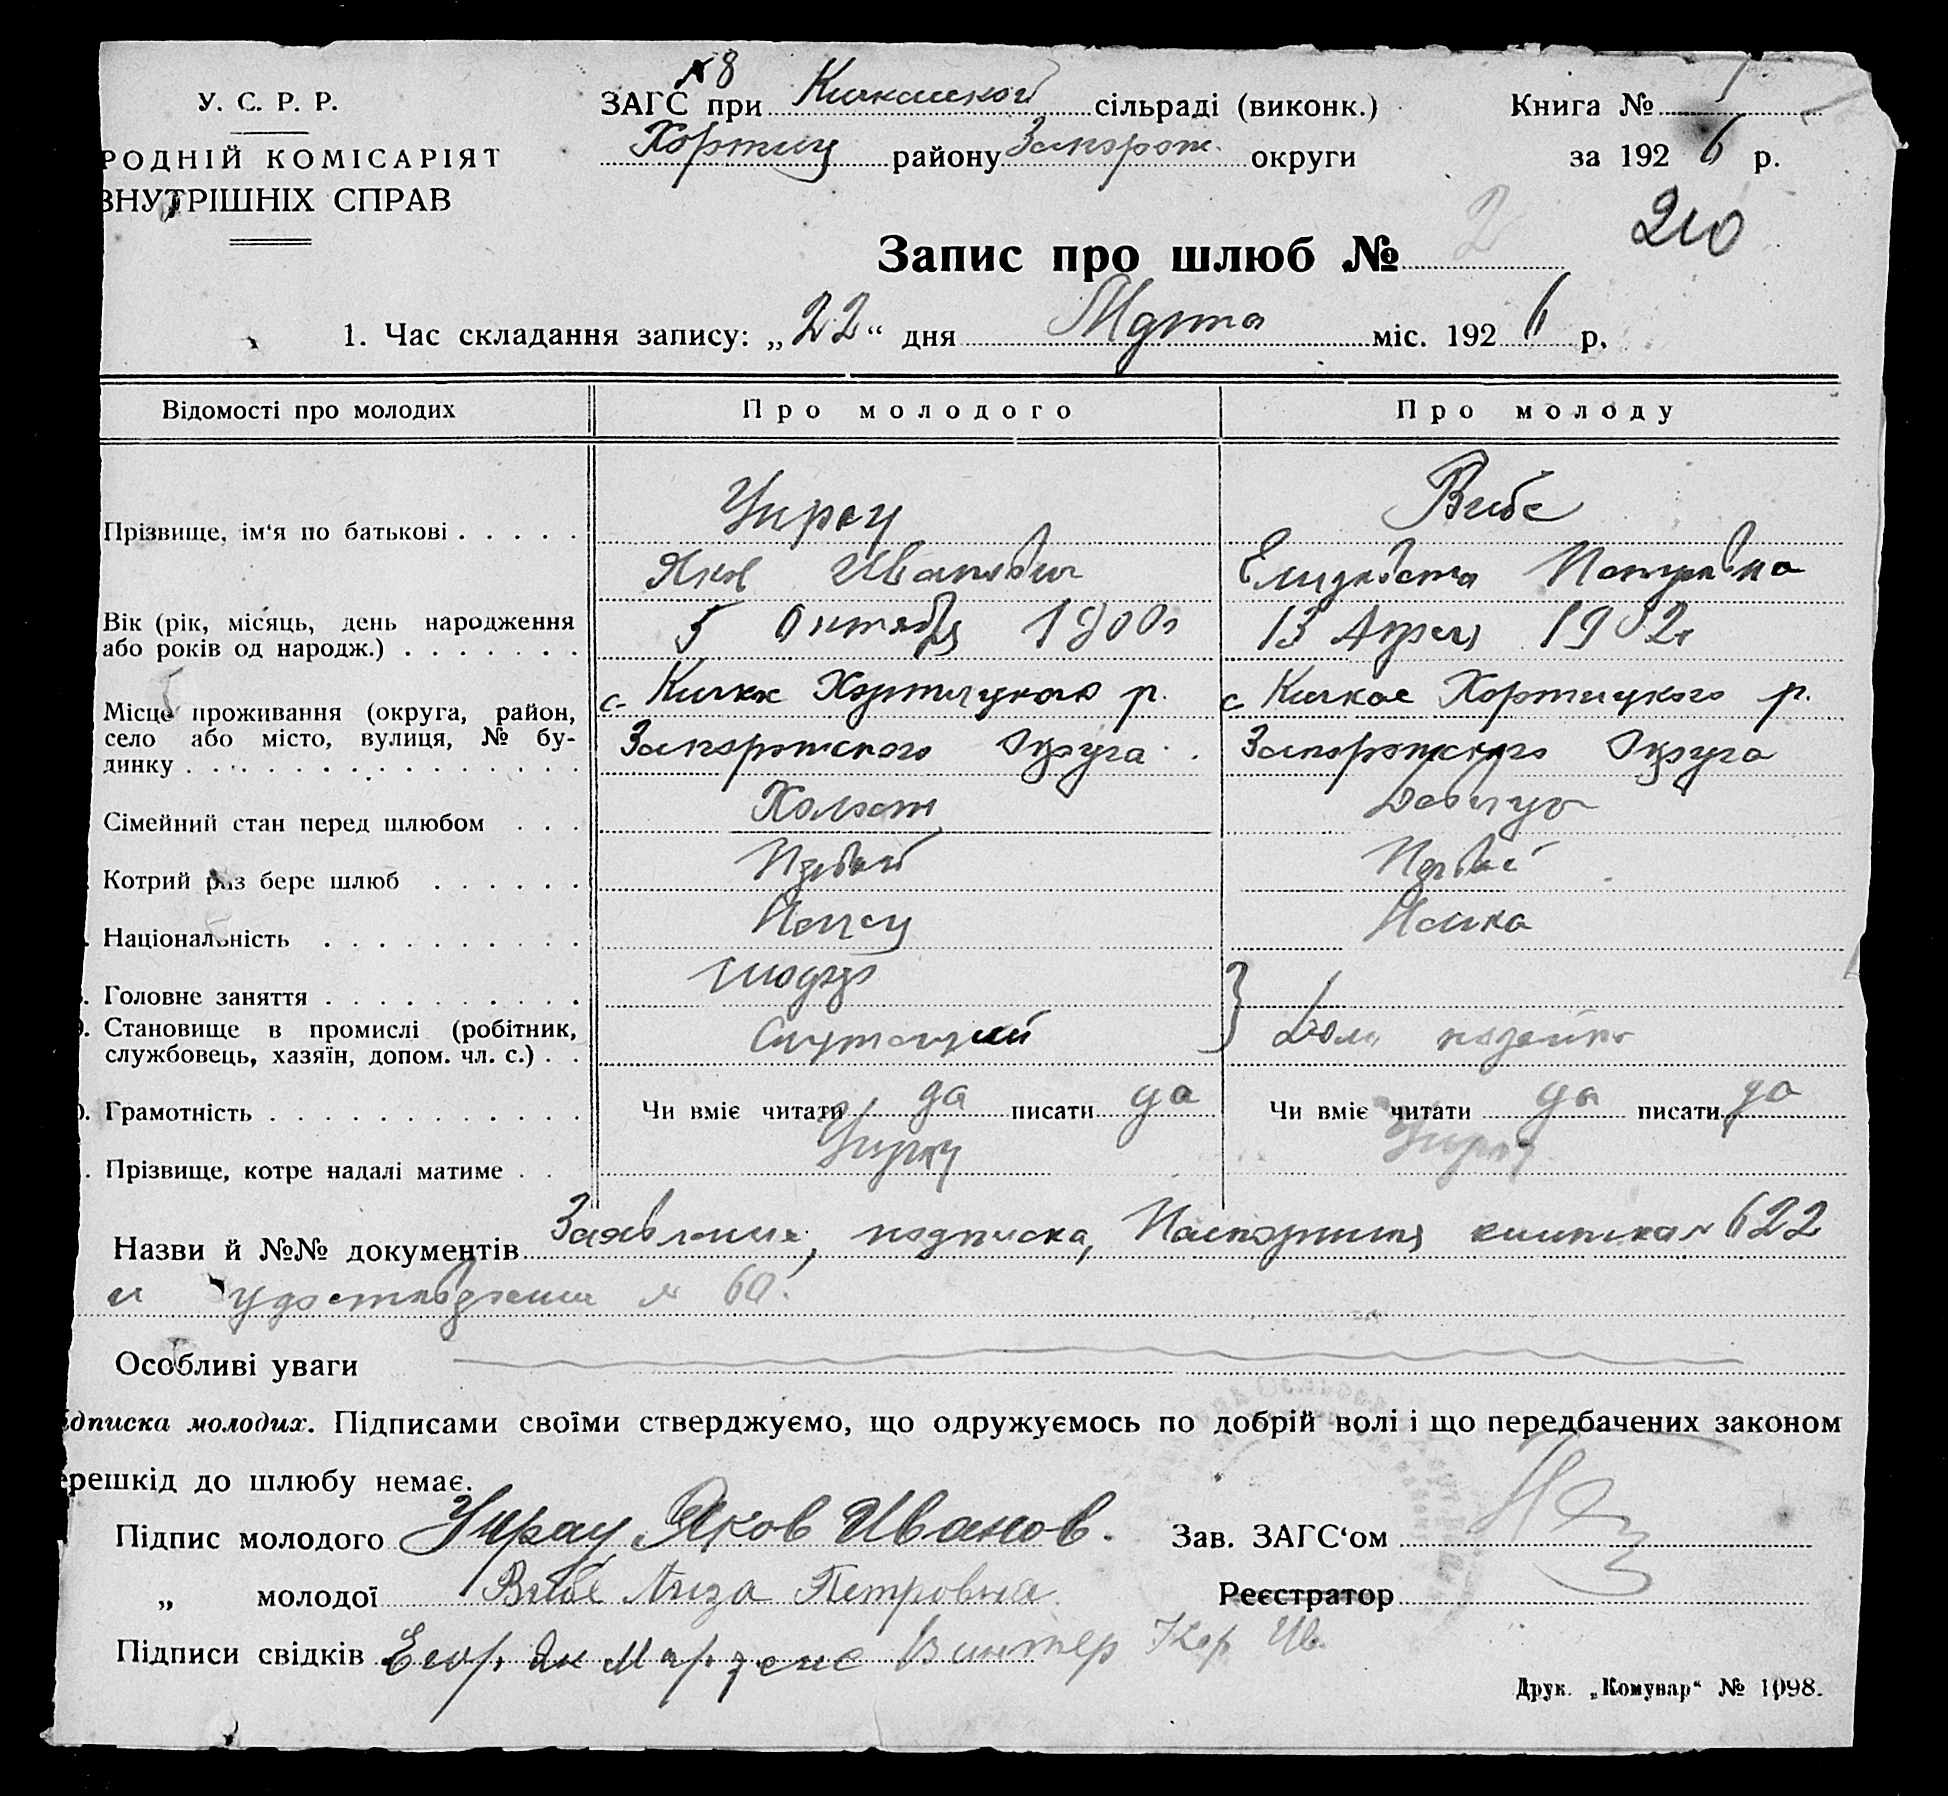 № 8
У. С. Р. Р.
ЗАГС при Кичкасской сільраді (виконк.)
Книга № 1
РОДНІЙ КОМІСАРІЯТ
Хортиц району Запорож. округи
за 1926 р.
ВНУТРІШНІХ СПРАВ
Запис про шлюб № 2
210
1. Час складання запису: „22“ дня Марта міс. 1926 р.
Відомості про молодих
Про молодого
Про молоду
Прізвище, ім‘я по батькові
Унрау
Вибе
Яков Иванович
Елизавета Петровна
Вік (рік, місяць, день народження або років од народж.)
5 Октября 1900г
13 Апреля 1902г
Місце проживання (округа, район, село або місто, вулиця, № будинку
с. Кичкас Хортицкого р.
с Кичкас Хортицкого р.
Запорожского Округа
Запорожского Округа
Сімейний стан перед шлюбом
Холост
Девица
Котрий раз бере шлюб
Первый
Первый
Національність
Немец
Немка
Головне заняття
Становище в промислі (робітник, службовець, хазяїн, допом. чл. с.)
Дом. хозяйка
Грамотність
Чи вміє читати да писати да
Чи вміє читати да писати да
Прізвище, котре надалі матиме
Унрау
Унрау
Назви й №№ документів Заявление, подписка, книжка № 622
и удостоверение № 60.
Особливі уваги
дписка молодих. Підписами своїми стверджуємо, що одружуємось по добрій волі і що передбачених законом
ерешкід до шлюбу немає.
Підпис молодого Унрау Яков Иванов.
Зав. ЗАГС‘ом
„ молодої Вибе Лиза Петровна
Реєстратор
Підписи свідків Винтер Кор. Ив.
Друк. „Комунар“ № 1098.